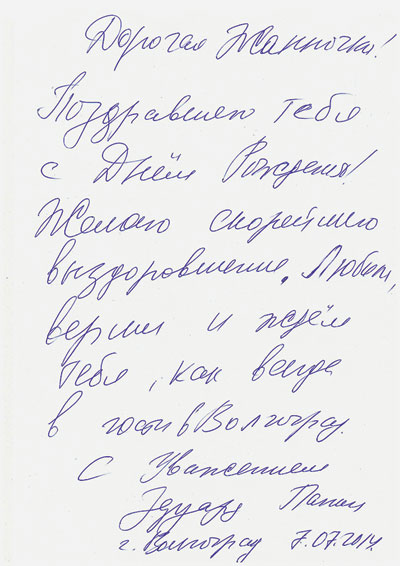 Дорогая Жанночка!
Поздравляю тебя
с Днём Рождения!
Желаю скорейшего
выздоровления. Любим,
верим и ждём
тебя, как всегда
в гости в Волгоград.
С Уважением
Эдуард
г. Волгоград 7.07.2014.